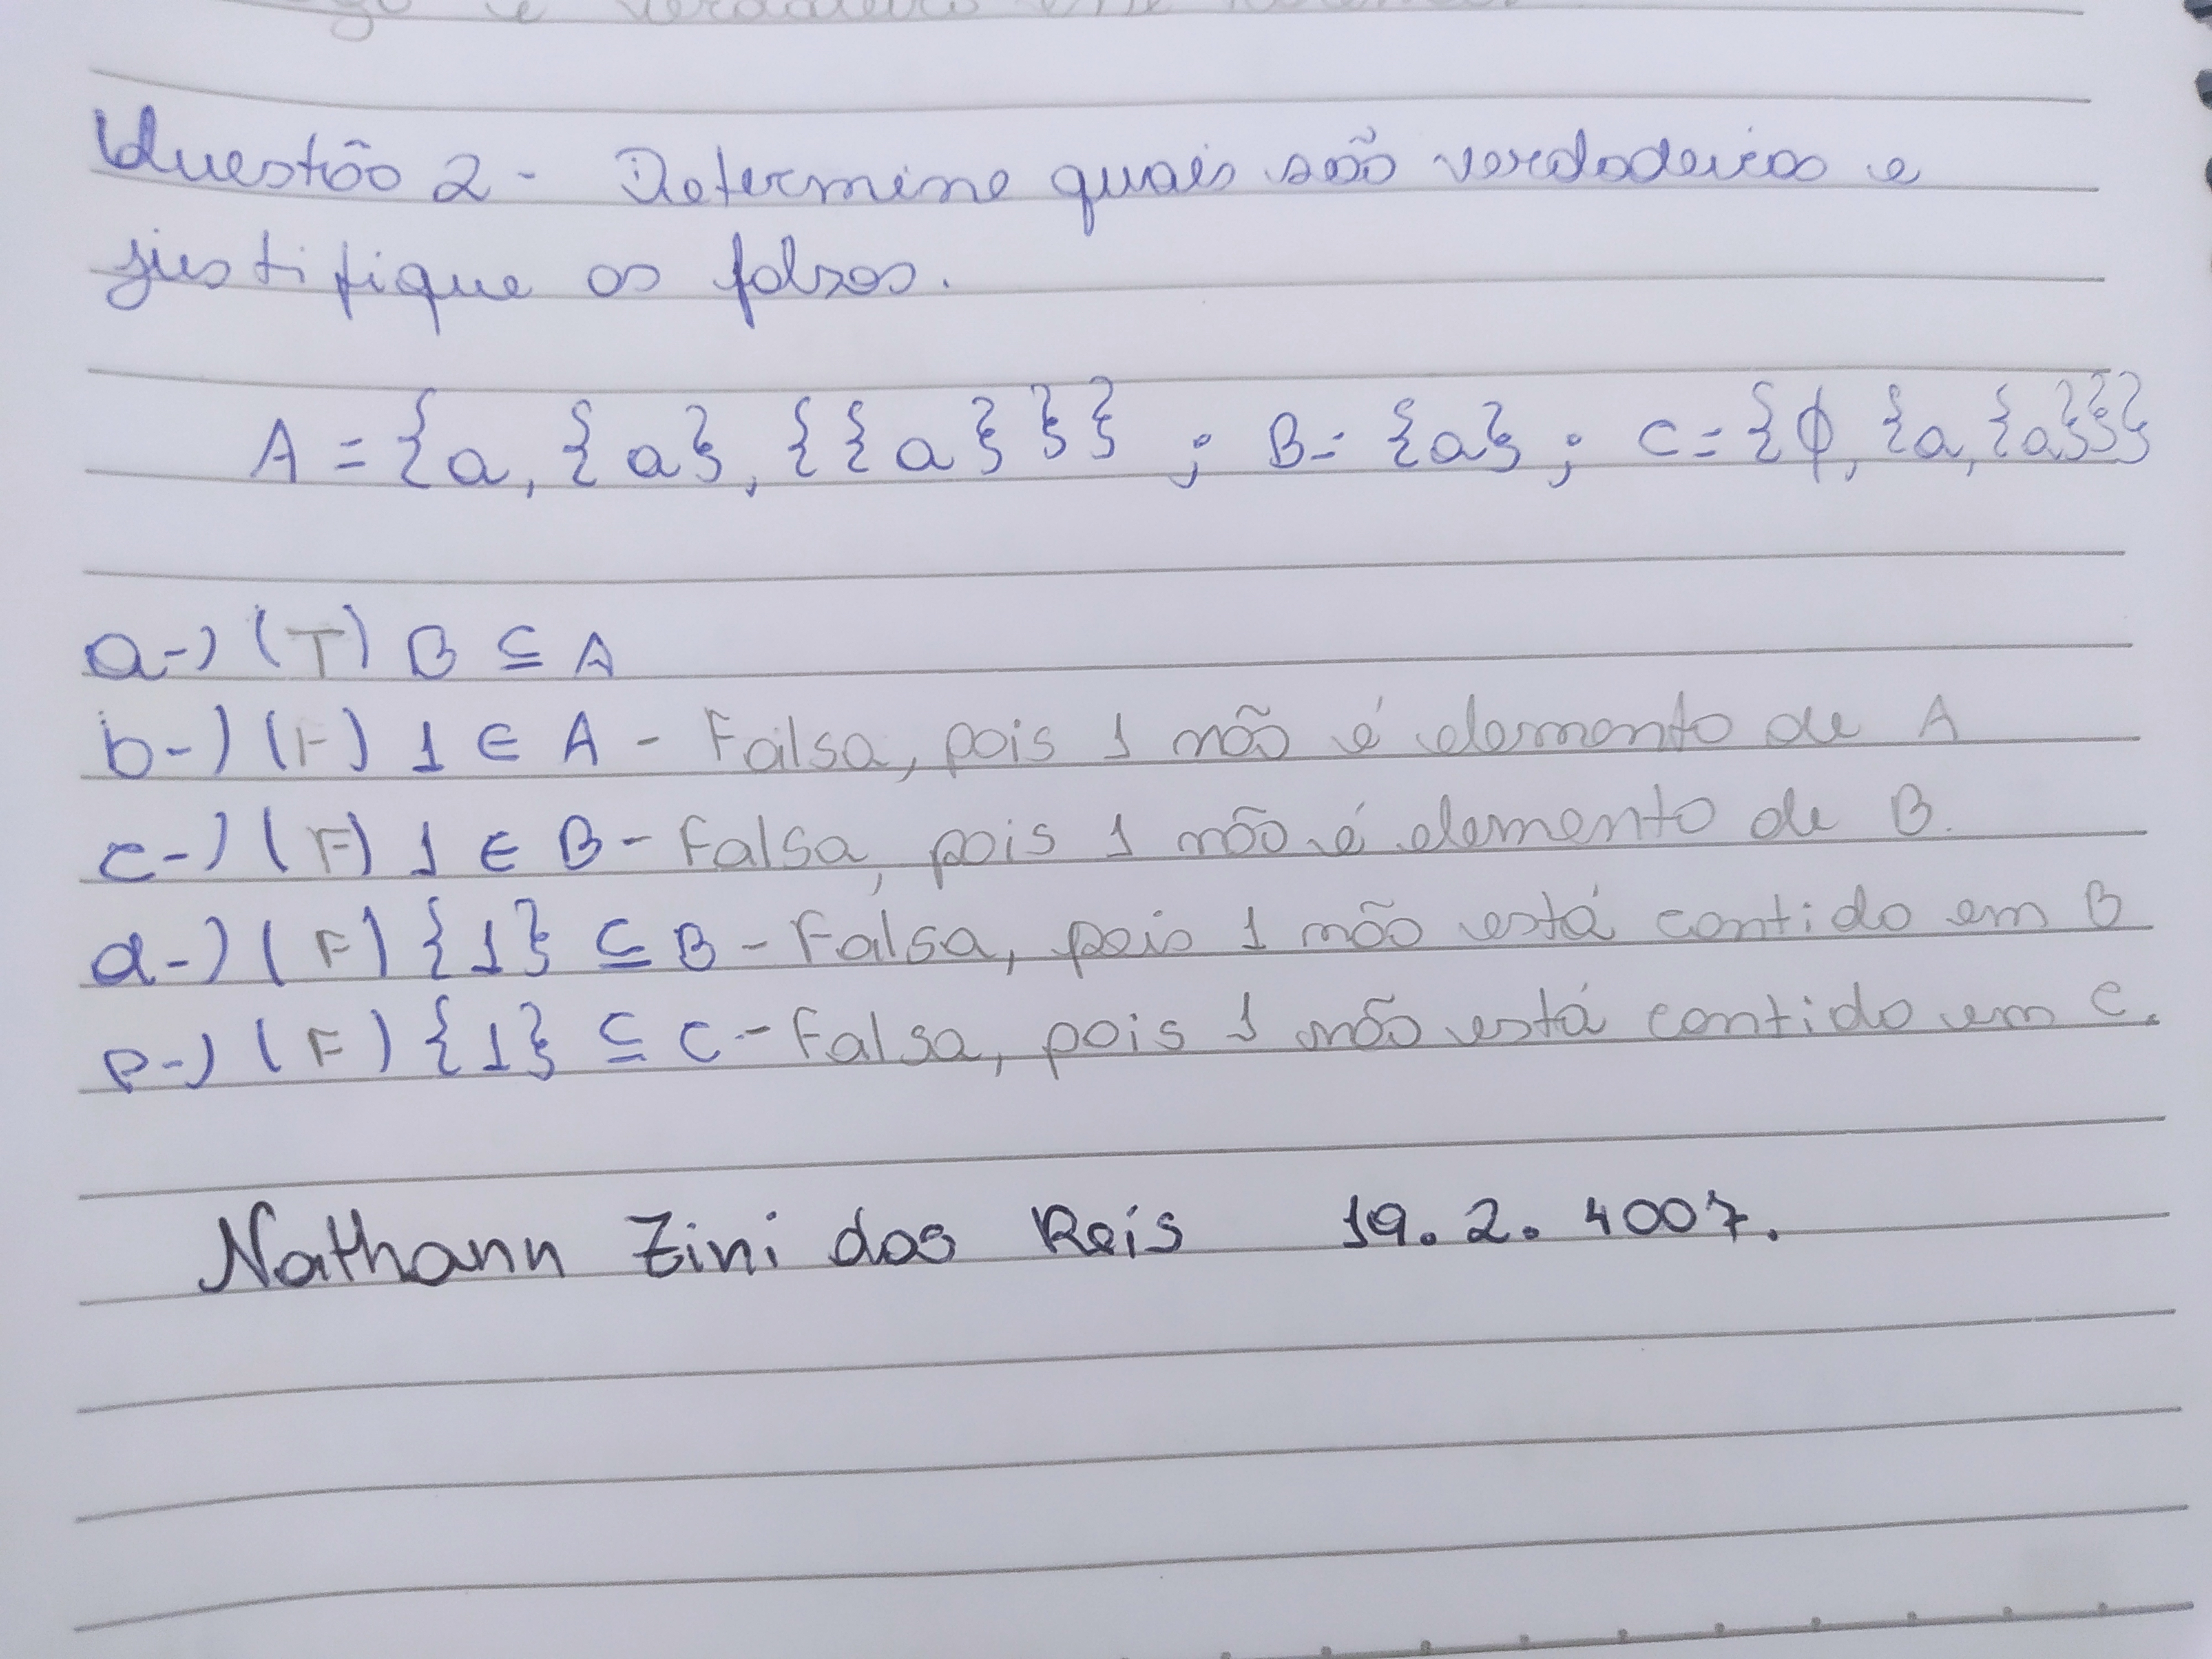 Questão 2 - Determine quais são verdadeiros e
justifique os falsos.
A = {a, {a}, {{a}}} ; B = {a} ; C = {ϕ, {a, {a}}}
a-) (T) B ⊆ A
b-) (F) 1 ∈ A - Falsa, pois 1 não é elemento de A
c-) (F) 1 ∈ B - Falsa, pois 1 não é elemento de B.
d-) (F) {1} ⊆ B - Falsa, pois 1 não está contido em B
e-) (F) {1} ⊆ C - Falsa, pois 1 não está contido em C.
Nathann Zini dos Reis 19.2.4007.